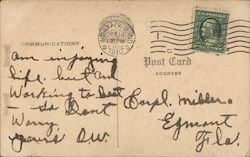 COMMUNICATIONS
Post Card
ADDRESS
1910
am enjoying
life. but and
Working to beat
Dont
Worry
yours D.W.
Corpl. Miller
Egmont
Fla.